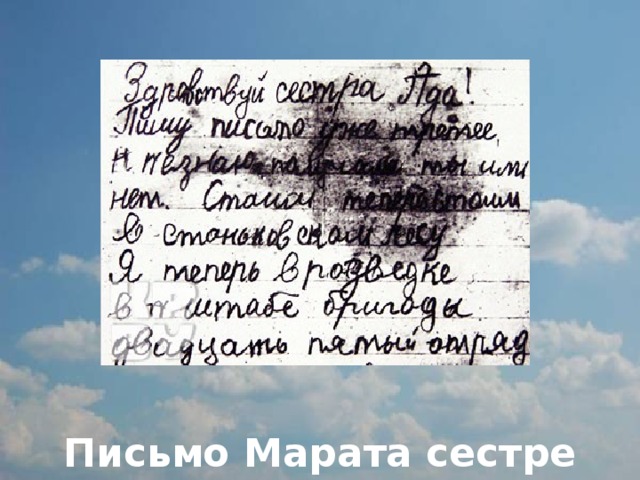 Здравствуй сестра Ада!
Пишу письмо уже третее,
н незнаю палучала ты или
нет. Стаим теперь стаим
В станьковскам лесу
Я теперь в розведке
в штабе бригоды
двадцать пятый отряд
Письмо Марата сестре